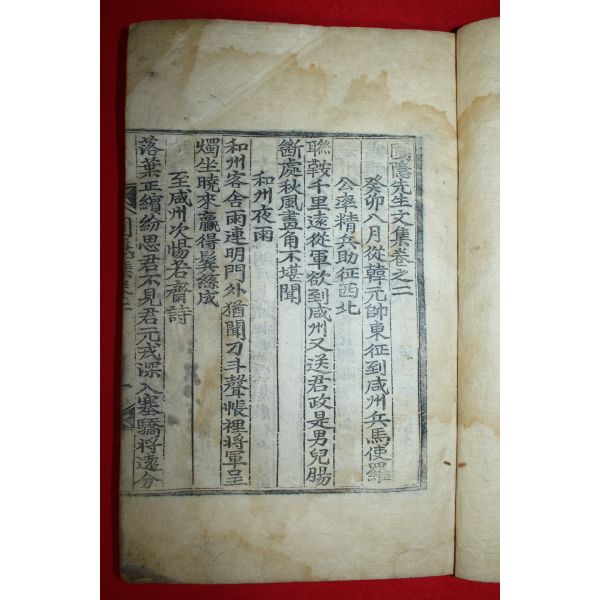 圃隱先生文集卷之二
癸卯八月從韓元帥東征到咸州兵馬使羅
公率精兵助征西北
聯鞍千里遠從軍欲到咸州又送君政是男兒腸
斷處秋風畫角不堪聞
和州夜雨
和州客舍雨連明門外猶聞刀斗聲帳裡將軍呈
燭坐曉來贏得鬂絲成
至咸州次惕若齋詩
落葉正繽紛思君不見君元戎深入塞驍將遠分